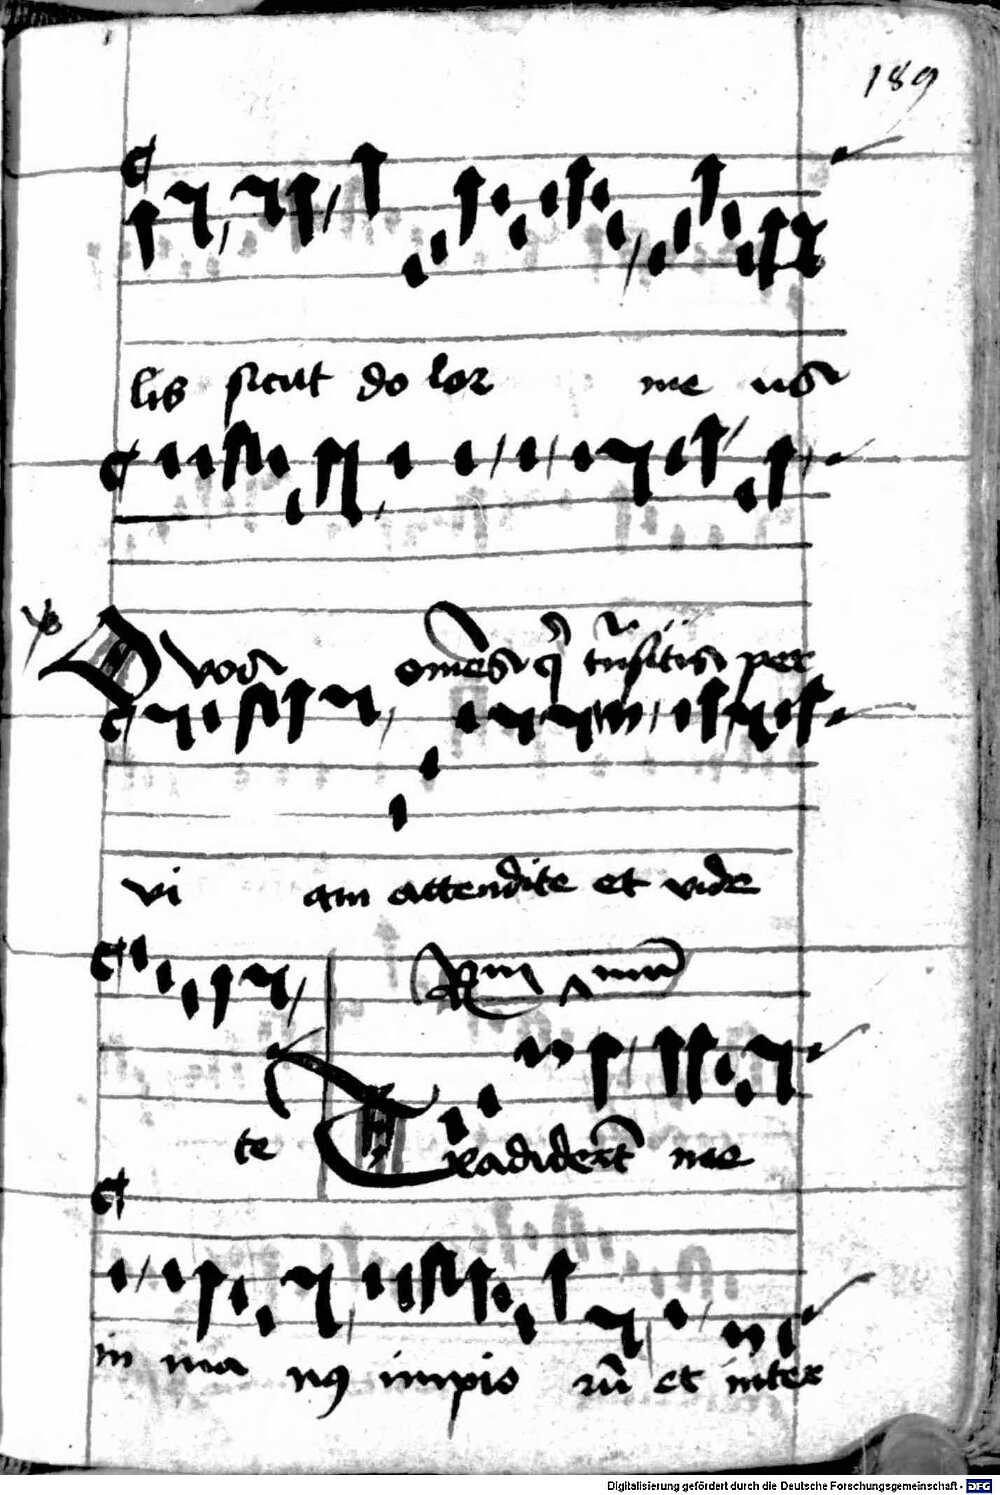 189
lis sicut do lor me us
O vos om̄es q̄ trāsitis per
vi am attendite et vide
Rm̄
te Tradider̄t me
in ma nꝰ impio rū et inter
Digitalisierung gefördert durch die Deutsche Forschungsgemeinschaft - DFG